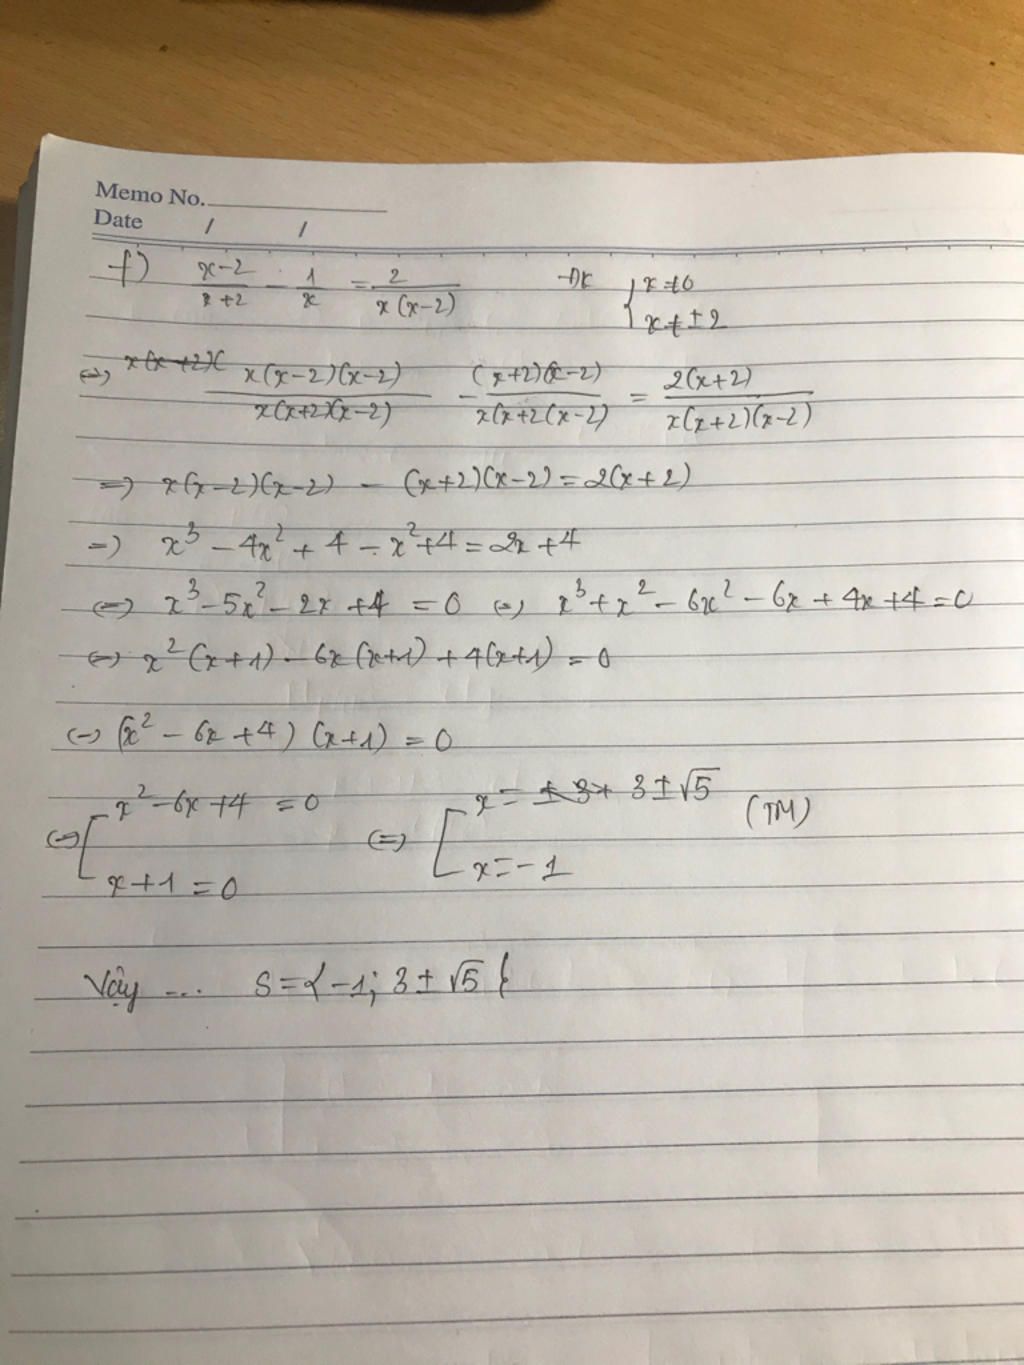 Memo No.
Date / /
f) (x-2)/(x+2) - 1/x = 2/(x(x-2)) ĐK { x≠0
x≠±2
(=) x(x+2)( x(x-2)(x-2)/(x(x+2)(x-2)) - (x+2)(x-2)/(x(x+2(x-2)) = 2(x+2)/(x(x+2)(x-2))
=) x(x-2)(x-2) - (x+2)(x-2) = 2(x+2)
=) x³ - 4x² + 4 - x² + 4 = 2x + 4
(=) x³ - 5x² - 2x + 4 = 0 (=) x³ + x² - 6x² - 6x + 4x + 4 = 0
(=) x² (x+1) - 6x (x+1) + 4(x+1) = 0
(=) (x² - 6x + 4) (x+1) = 0
(=) [ x² - 6x + 4 = 0 (=) [ x = ±3+ 3±√5 (TM)
x+1 = 0 x = -1
Vậy ... S = { -1; 3 ± √5 }